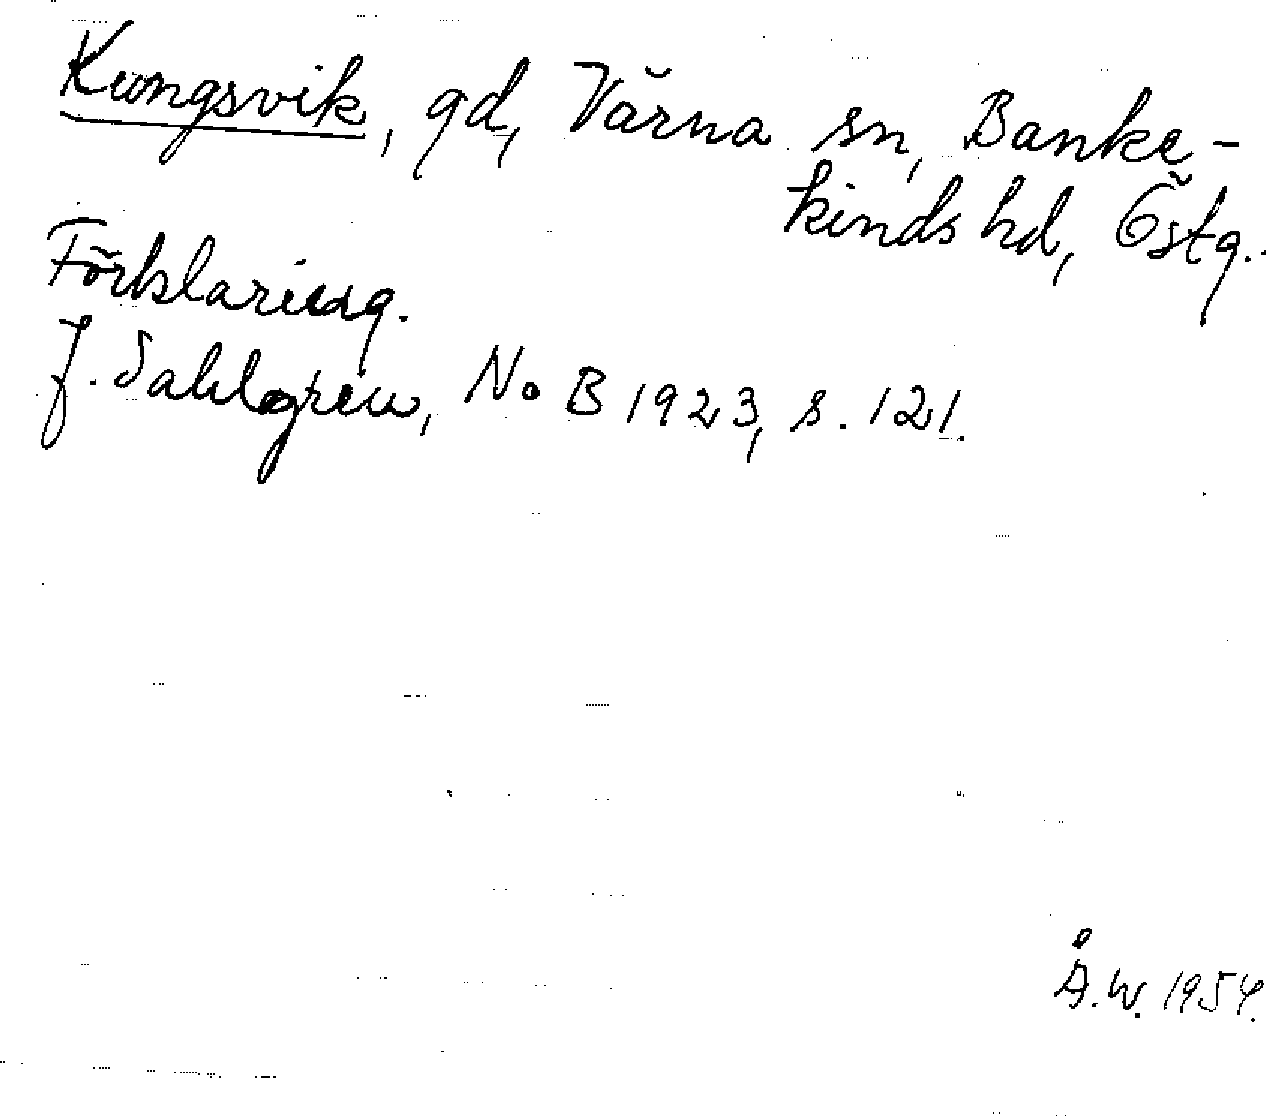 Kungsvik, gd, Värna sn, Banke-
kinds hd, Östg.
Förklaring.
J. Sahlgren, No B 1923, s. 121.
Å.W. 1954.